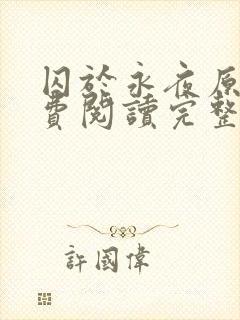 囚於永夜原
費閱讀完整
許國偉